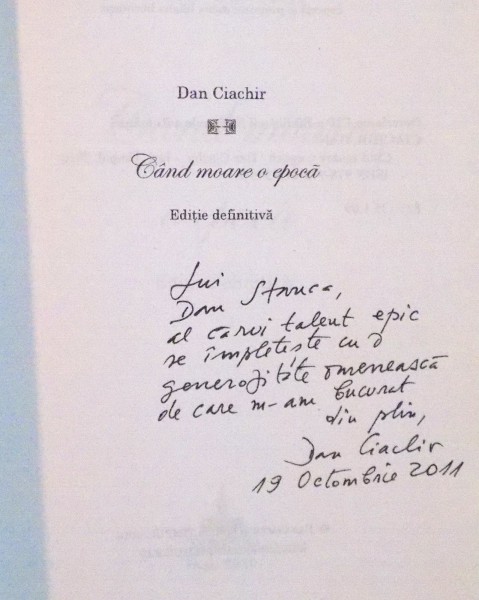 Dan Ciachir
Când moare o epocă
Ediție definitivă
Lui
Dan Stanca,
al cărui talent epic
se împletește cu o
generozitate omenească
de care m-am bucurat
din plin,
Dan Ciachir
19 Octombrie 2011